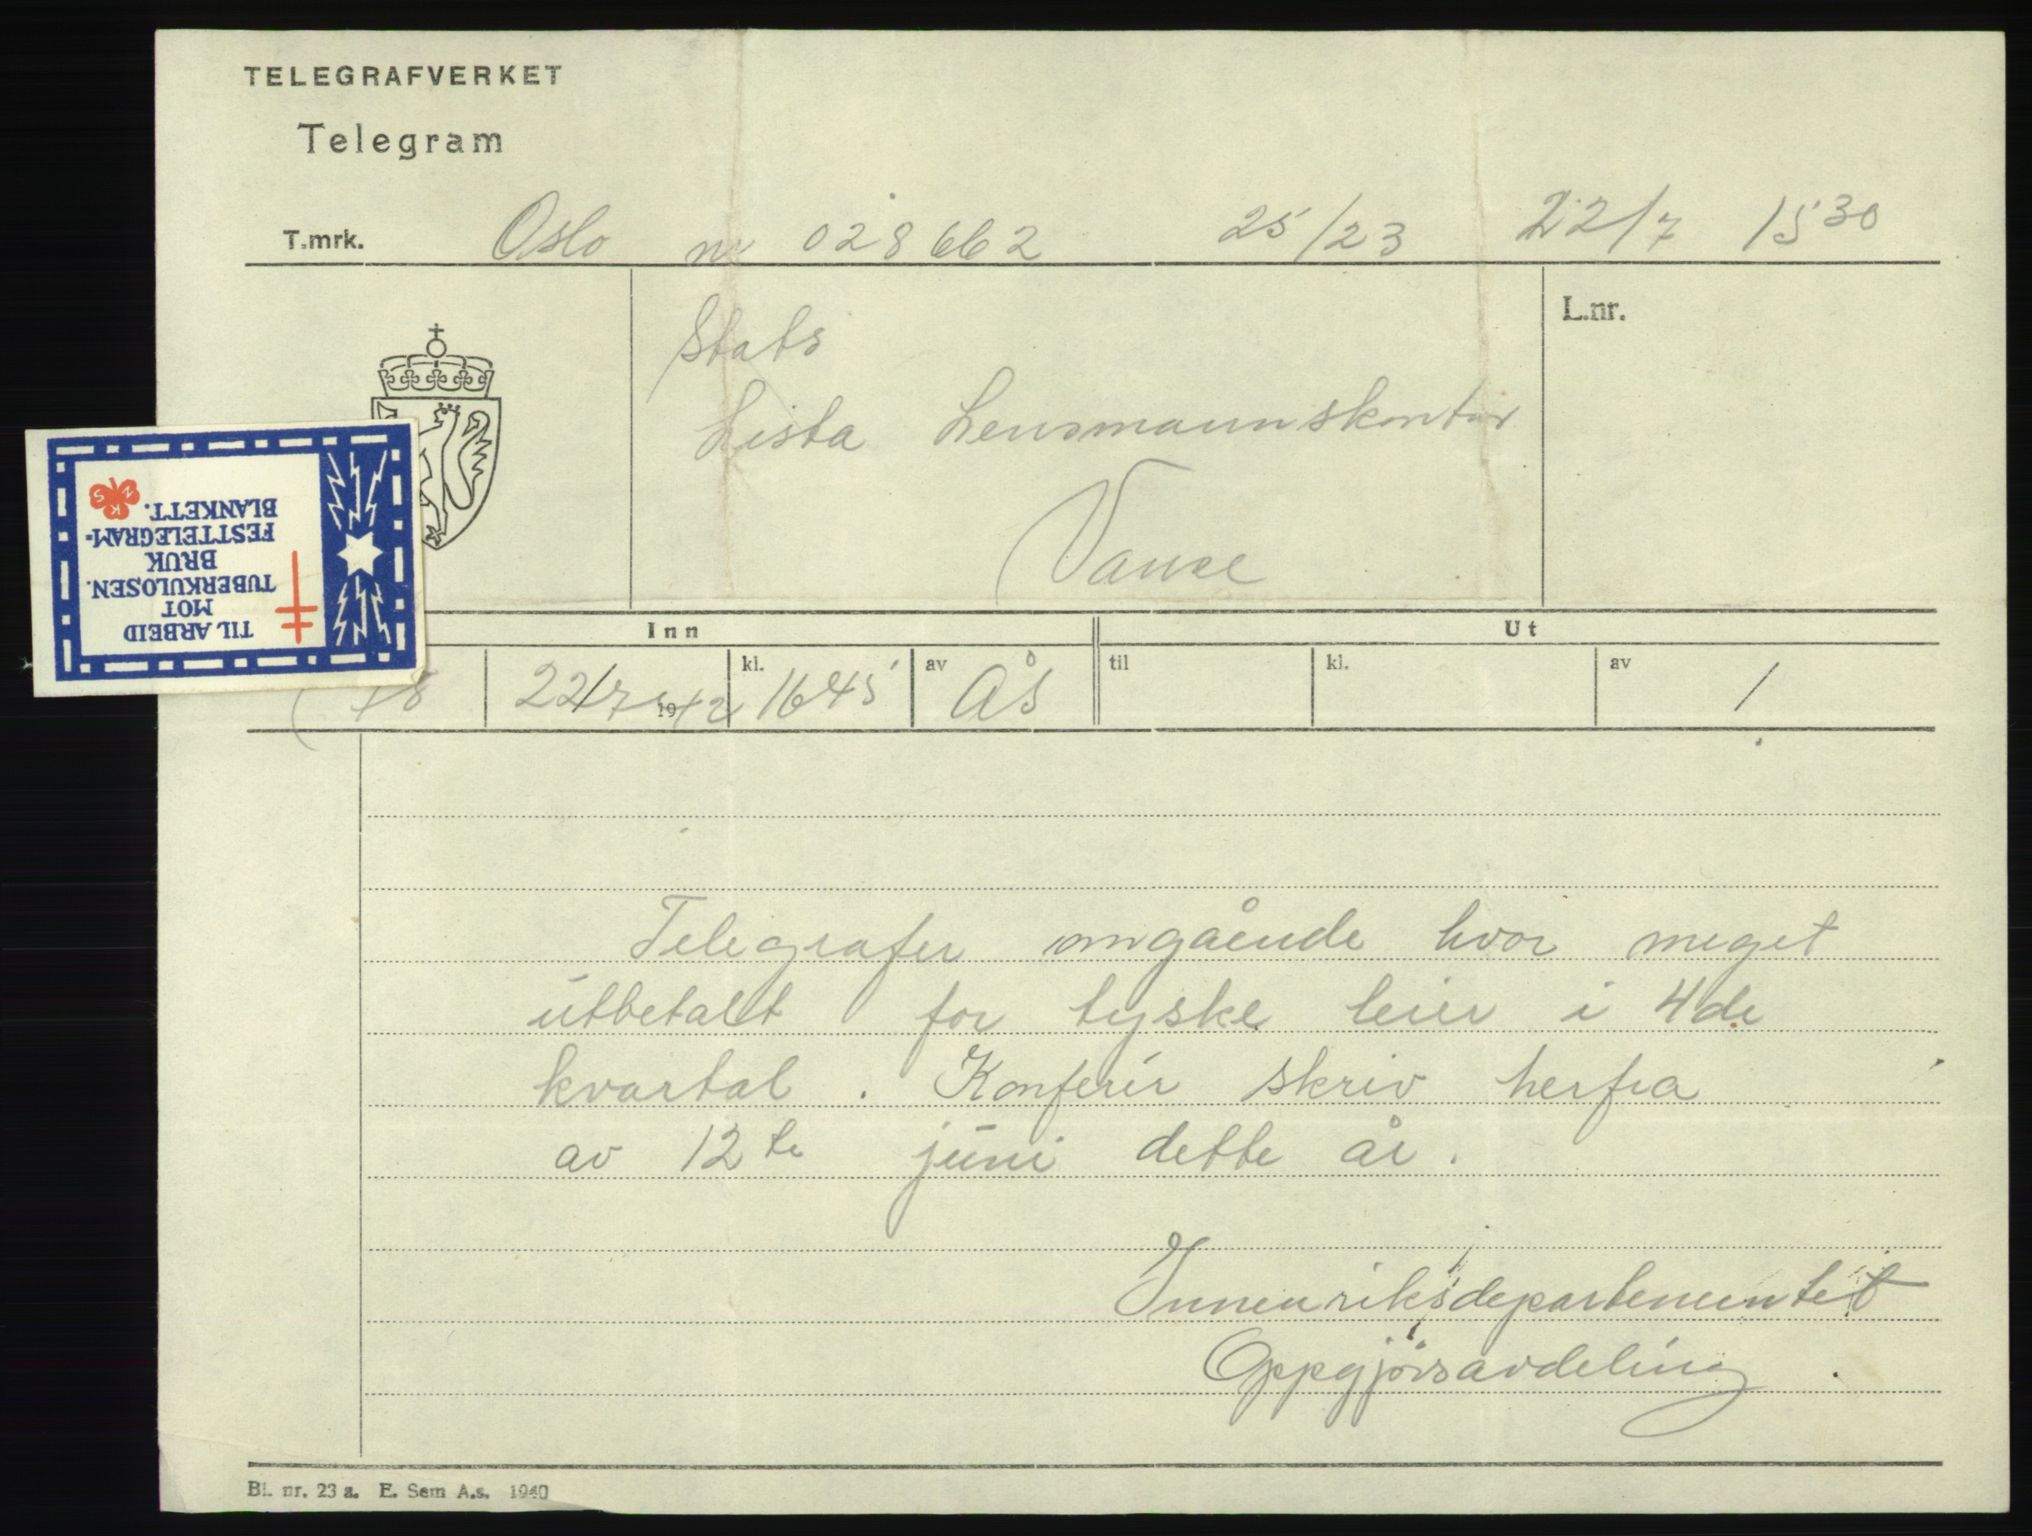 TELEGRAFVERKET
Telegram
T.mrk. Oslo nr 028662 25/23 22/7 15 30
Stats
Lista Lensmannskontor
Vanse
L.nr.
TIL ARBEID
MOT
TUBERKULOSEN.
BRUK
FESTTELEGRAM-
BLANKETT.
N K S
Inn Ut
22/7 1942 kl. 1645 av ÅS til kl. av /
Telegrafer omgående hvor meget
utbetalt for tyske leier i 4de
kvartal . Konferér skriv herfra
av 12te juni dette år .
Innenriksdepartementet
Oppgjörsavdeling .
Bl. nr. 23 a. E. Sem A.s. 1940